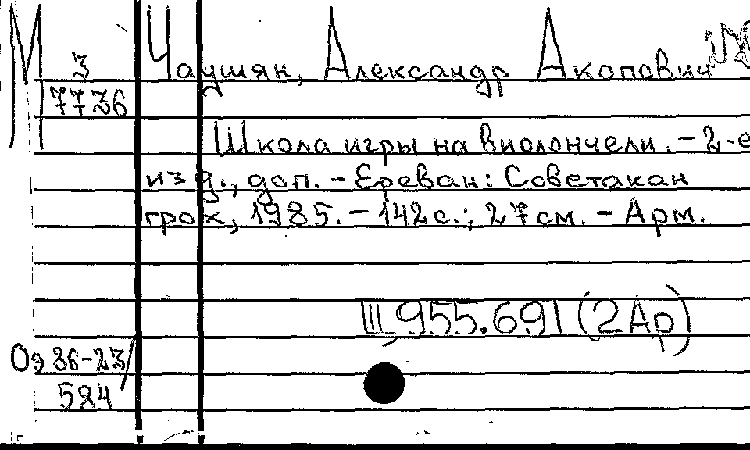 М 3 Чаушян, Александр Акопович
7736
Школа игры на виолончели. - 2-е
изд., доп. - Ереван: Советакан
грох, 1985. - 142 с.; 27 см. - Арм.
III, 955.691 (2Ар)
Оэ 36-23/
584